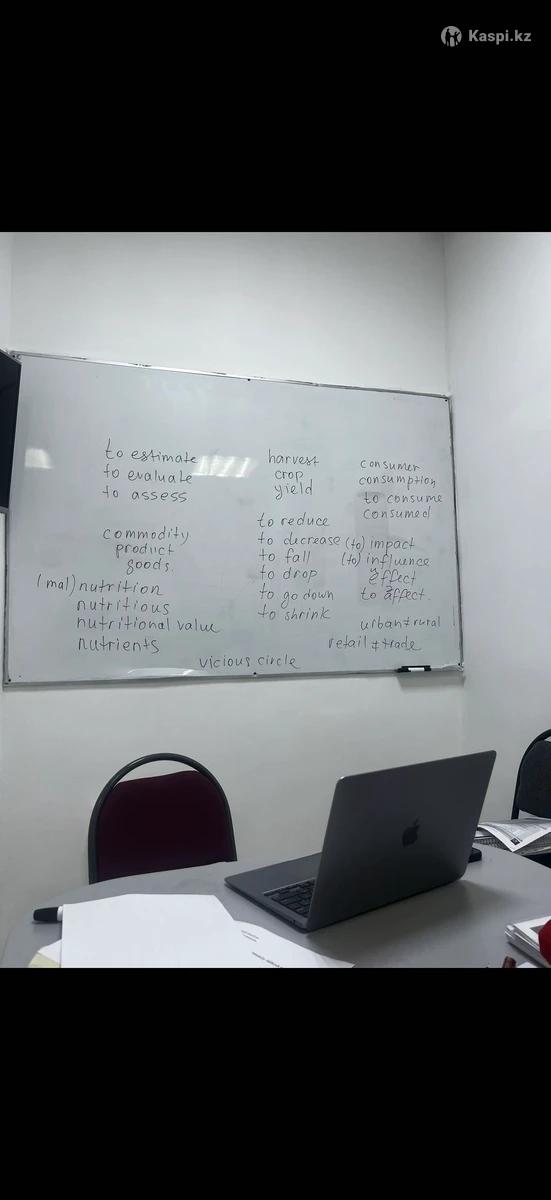 Kaspi.kz
to estimate
to evaluate
to assess
commodity
product
goods.
(mal) nutrition
nutritious
nutritional value
nutrients
harvest
crop
yield
to reduce
to decrease
to fall
to drop
to go down
to shrink
consumer
consumption
to consume
consumed
(to) impact
(to) influence
effect
to affect.
urban ≠ rural
retail ≠ trade
vicious circle